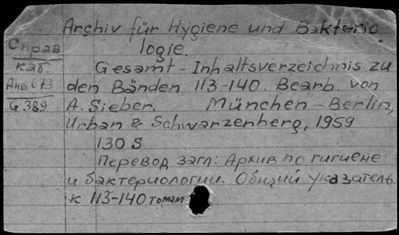 Archiv für Hygiene und Bakterio
logie.
Справ
каб.
Gesamt-Inhaltsverzeichnis zu
Анв 673
den Bänden 113-140. Bearb. von
G 389
A. Sieber. München-Berlin,
Urban & Schwarzenberg, 1959
130 S
Перевод загл: Архив по гигиене
и бактериологии. Общий указатель
к 113-140 томам